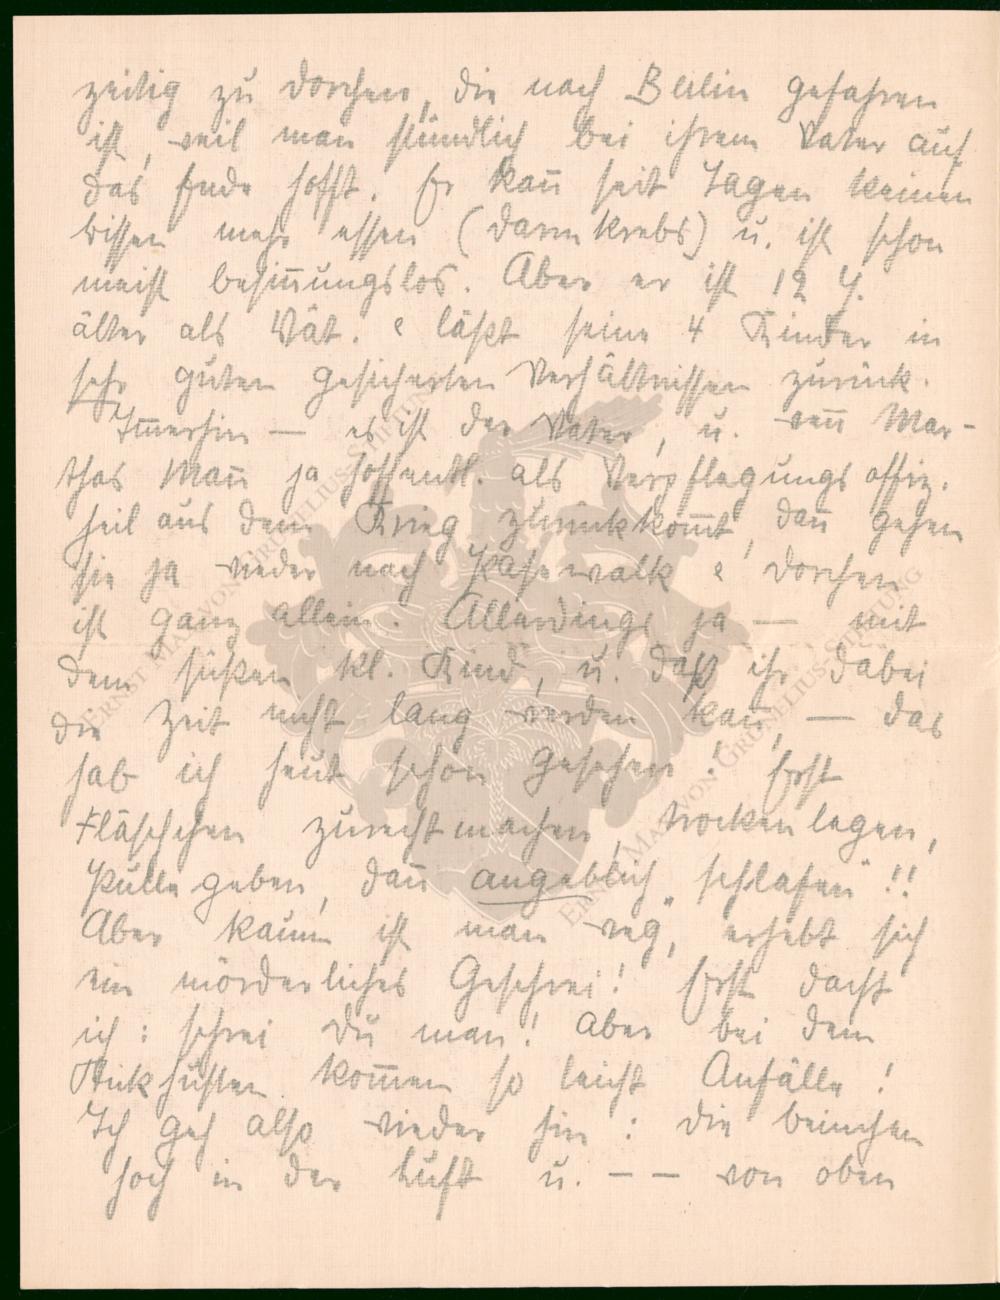 zeitig zu Dorchen, die nach Berlin gefahren
ist, weil man stündlich bei ihrem Vater auf
das Ende hofft. Er kan̄ seit Tagen keinen
bissen mehr essen (Darmkrebs) u. ist schon
meist besin̄ungslos. Aber er ist 12 J.
älter als Vat. e läßt seine 4 Kinder in
sehr guten gesicherten Verhältnissen zurück.
Im̄erhin — es ist der Vater, u. wen̄ Mar-
thas Man̄ ja hoffentl. als Verpflegungsoffiz.
heil aus dem Krieg zurückkom̄t, dan̄ gehen
sie ja wieder nach Pasewalk e Dorchen
ist ganz allein. Allerdings ja — mit
dem süßen kl. Kind, u. daß ihr dabei
die Zeit nicht lang werden kan̄, — das
hab ich heut schon gesehen! Erst
Fläschchen zurechtmachen, trocken legen,
Pulle geben, dan̄ angeblich „schlafen“!!
Aber kaum ist man weg, erhebt sich
ein mörderliches Geschrei! Erst dacht
ich: schrei du man! Aber bei dem
Stickhusten kom̄en so leicht Anfälle!
Ich geh also wieder hin: die beinchen
hoch in der Luft u. — — von oben
Ernst Max von Grunelius-Stiftung
Ernst Max von Grunelius-Stiftung